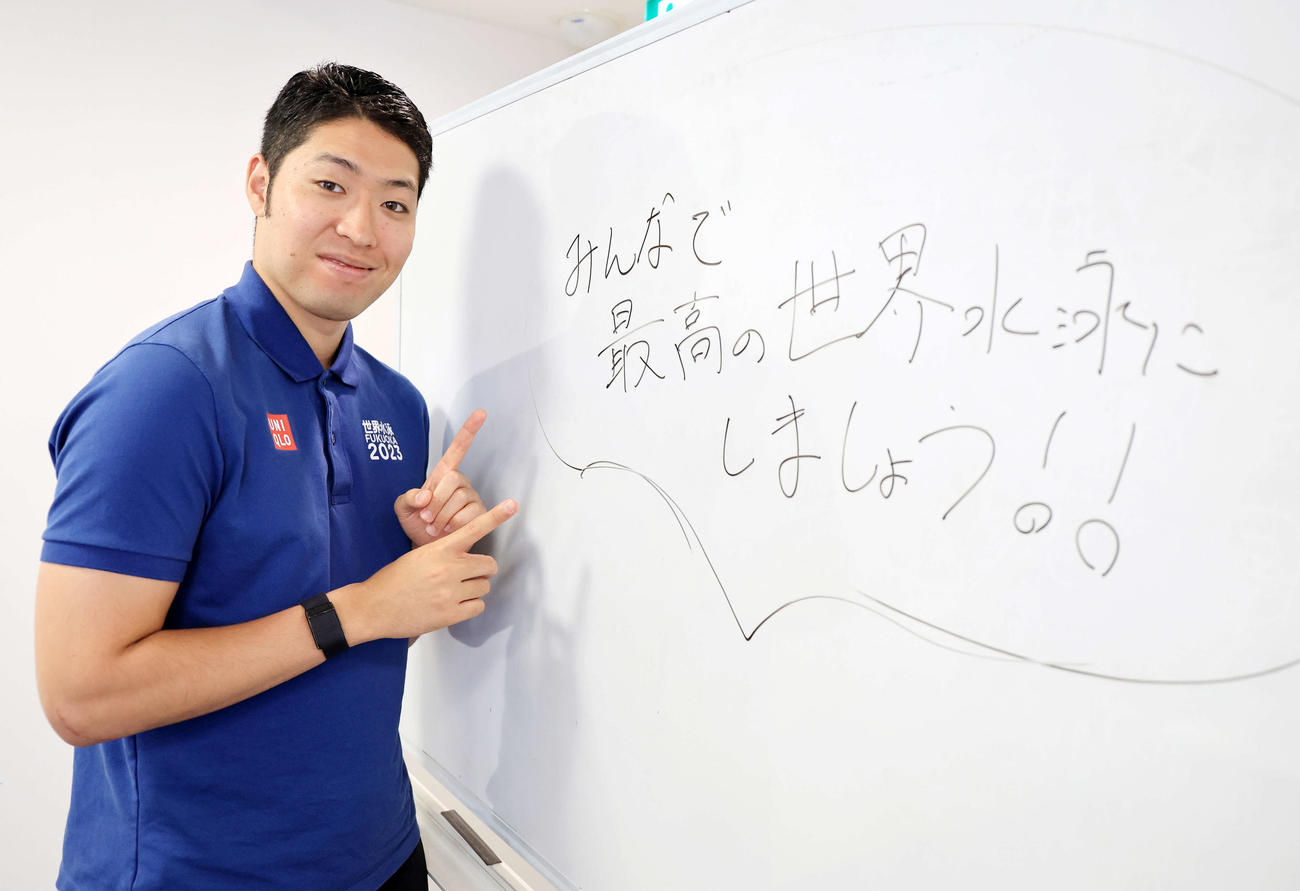 みんなで
最高の世界水泳に
しましょう!!
UNI
QLO
世界水泳
FUKUOKA
2023